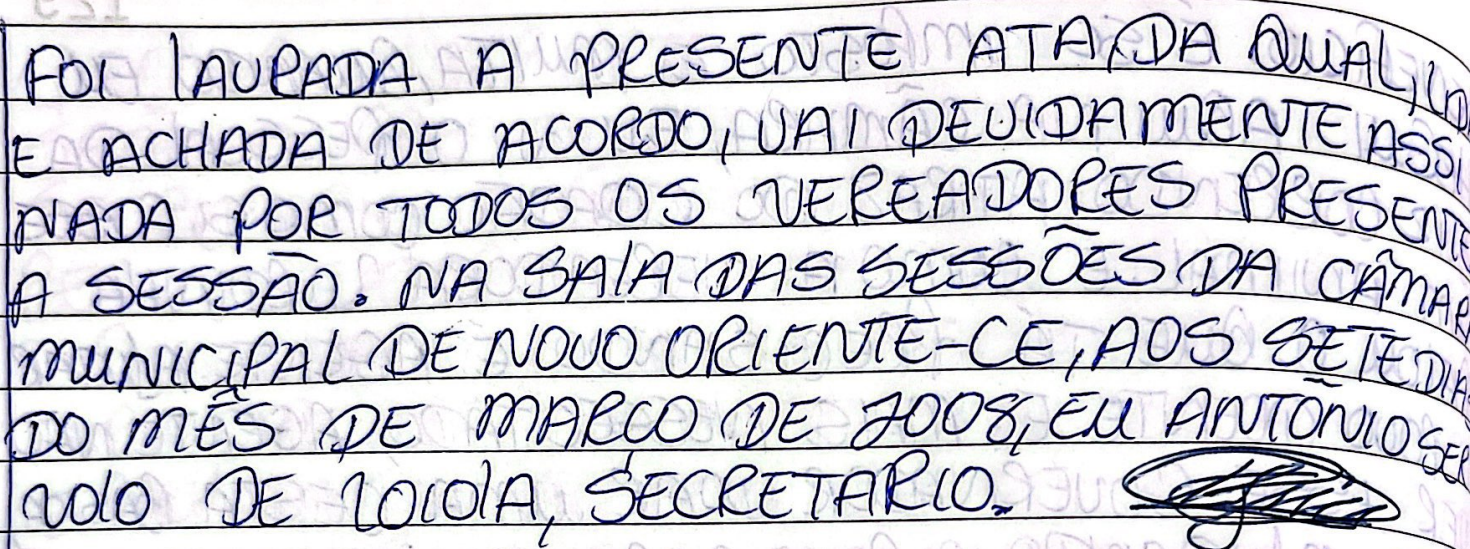 FOI LAVRADA A PRESENTE ATA, DA QUAL, LIDA
E ACHADA DE ACORDO, VAI DEVIDAMENTE ASSI
NADA POR TODOS OS VEREADORES PRESENTES
A SESSÃO. NA SALA DAS SESSÕES DA CÂMARA
MUNICIPAL DE NOVO ORIENTE-CE, AOS SETE DIAS
DO MÊS DE MARCO DE 2008, EU ANTÕNIO SER
VOLO DE LOIOLA, SECRETARIO.